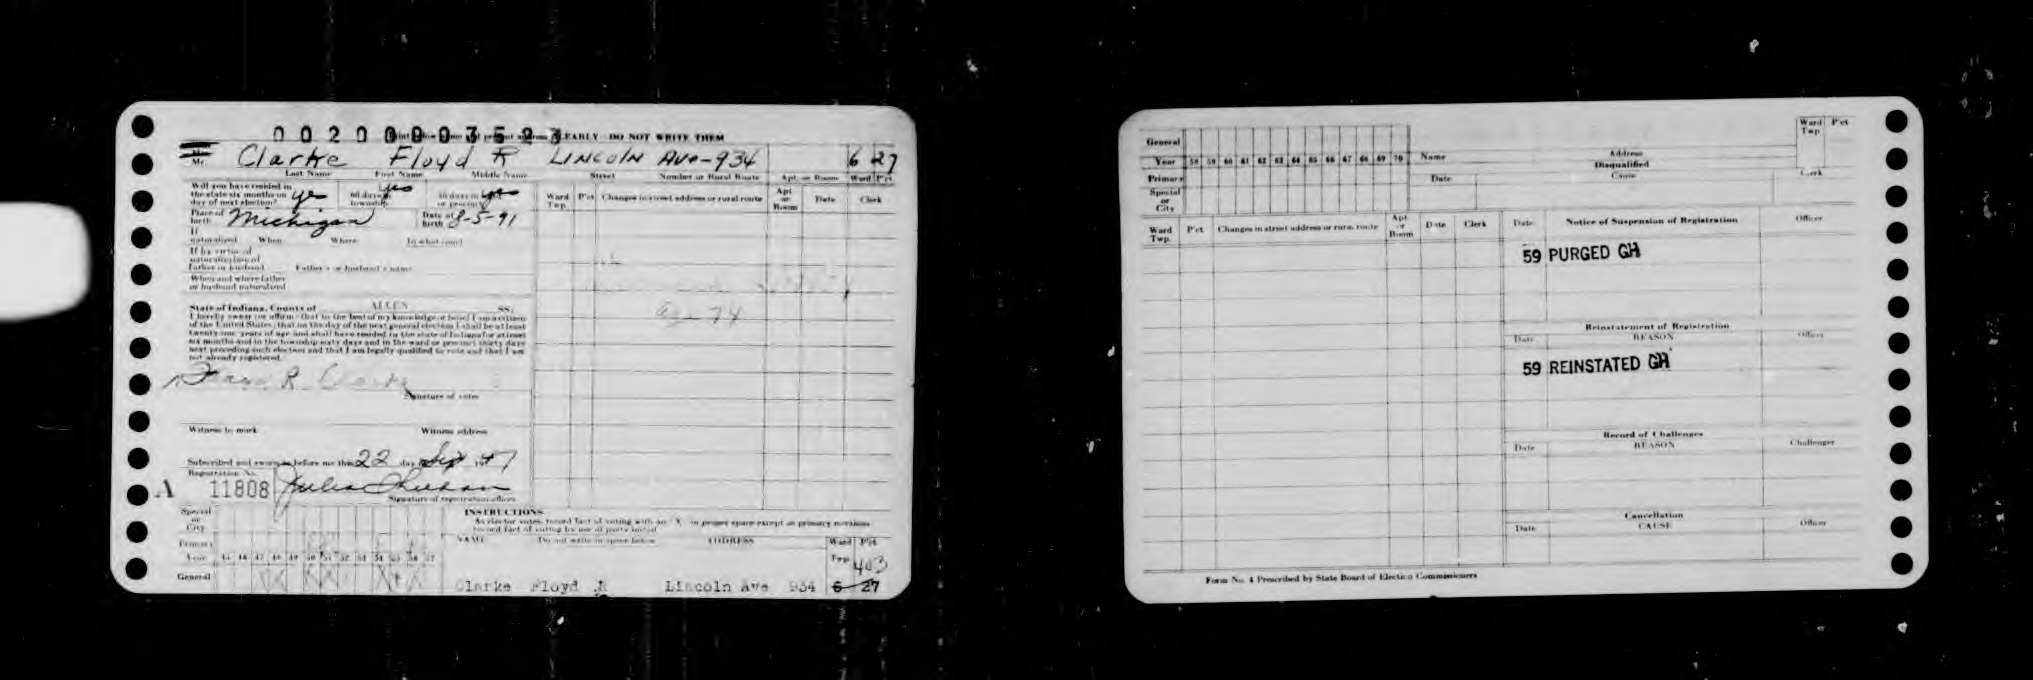 0020000352
CLEARLY DO NOT WRITE THEM
Mr. Clarke Floyd R LINCOLN AVE-934 6 27
Last Name First Name Middle Name Street Number or Rural Route Apt. or Room Ward Pct
Will you have resided in
the state six months on
day of next election? yes
60 days in
township yes
30 days in
or precinct yes
Ward
Twp. Pct Changes in street address or rural route Apt
or
Room Date Clerk
Place of
birth Michigan Date of
birth 8-5-91
If
naturalized When Where In what court
If by virtue of
naturalization of
father or husband Father's or husband's name
When and where father
or husband naturalized
State of Indiana, County of ALLEN SS:
I hereby swear (or affirm) that to the best of my knowledge or belief I am a citizen
of the United States; that on the day of the next general election I shall be at least
twenty-one years of age and shall have resided in the state of Indiana for at least
six months and in the township sixty days and in the ward or precinct thirty days
next preceding such election and that I am legally qualified to vote and that I am
not already registered.
Floyd R. Clarke
Signature of voter
Witness to mark Witness address
Subscribed and sworn to before me this 22 day Sept 1947
Registration No.
A 11808 Julia
Signature of registration officer
INSTRUCTIONS
As elector votes, record fact of voting with an "X" in proper space except at primary elections
record fact of voting by use of party initial
Special
or
City
Primary
Year 45 46 47 48 49 50 51 52 53 54 55 56 57
General
NAME Do not write in space below ADDRESS Ward Pct
Twp 403
Clarke Floyd R Lincoln Ave 934 6 27
General
Year 58 59 60 61 62 63 64 65 66 67 68 69 70
Primary
Special
or
City
Name Address
Disqualified
Date Cause Clerk
Ward
Twp Pct
Ward
Twp. Pct Changes in street address or rural route Apt
or
Room Date Clerk
Date Notice of Suspension of Registration Officer
59 PURGED GH
Reinstatement of Registration
Date REASON Officer
59 REINSTATED GH
Record of Challenges
Date REASON Challenger
Cancellation
Date CAUSE Officer
Form No. 4 Prescribed by State Board of Election Commissioners